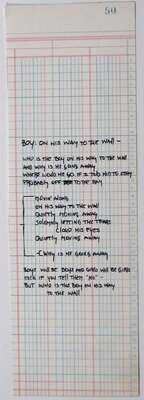 50
BOY: ON HIS WAY TO THE WAR -
WHO IS THE BOY ON HIS WAY TO THE WAR
AND WHY IS HE GOING AWAY
WHERE WOULD HE GO IF I TOLD HIM TO STAY
PROBABLY OFF TO THE BAY
MOVIN' ALONG
QUIETLY MOVING AWAY
SOLEMNLY LETTING THE TEARS
CLOUD HIS EYES
QUIETLY MOVING AWAY
- WHY IS HE GOING AWAY
BOYS WILL BE BOYS AND GIRLS WILL BE GIRLS
EVEN IF YOU TELL THEM "NO" -
BUT WHO IS THE BOY ON HIS WAY
TO THE WAR